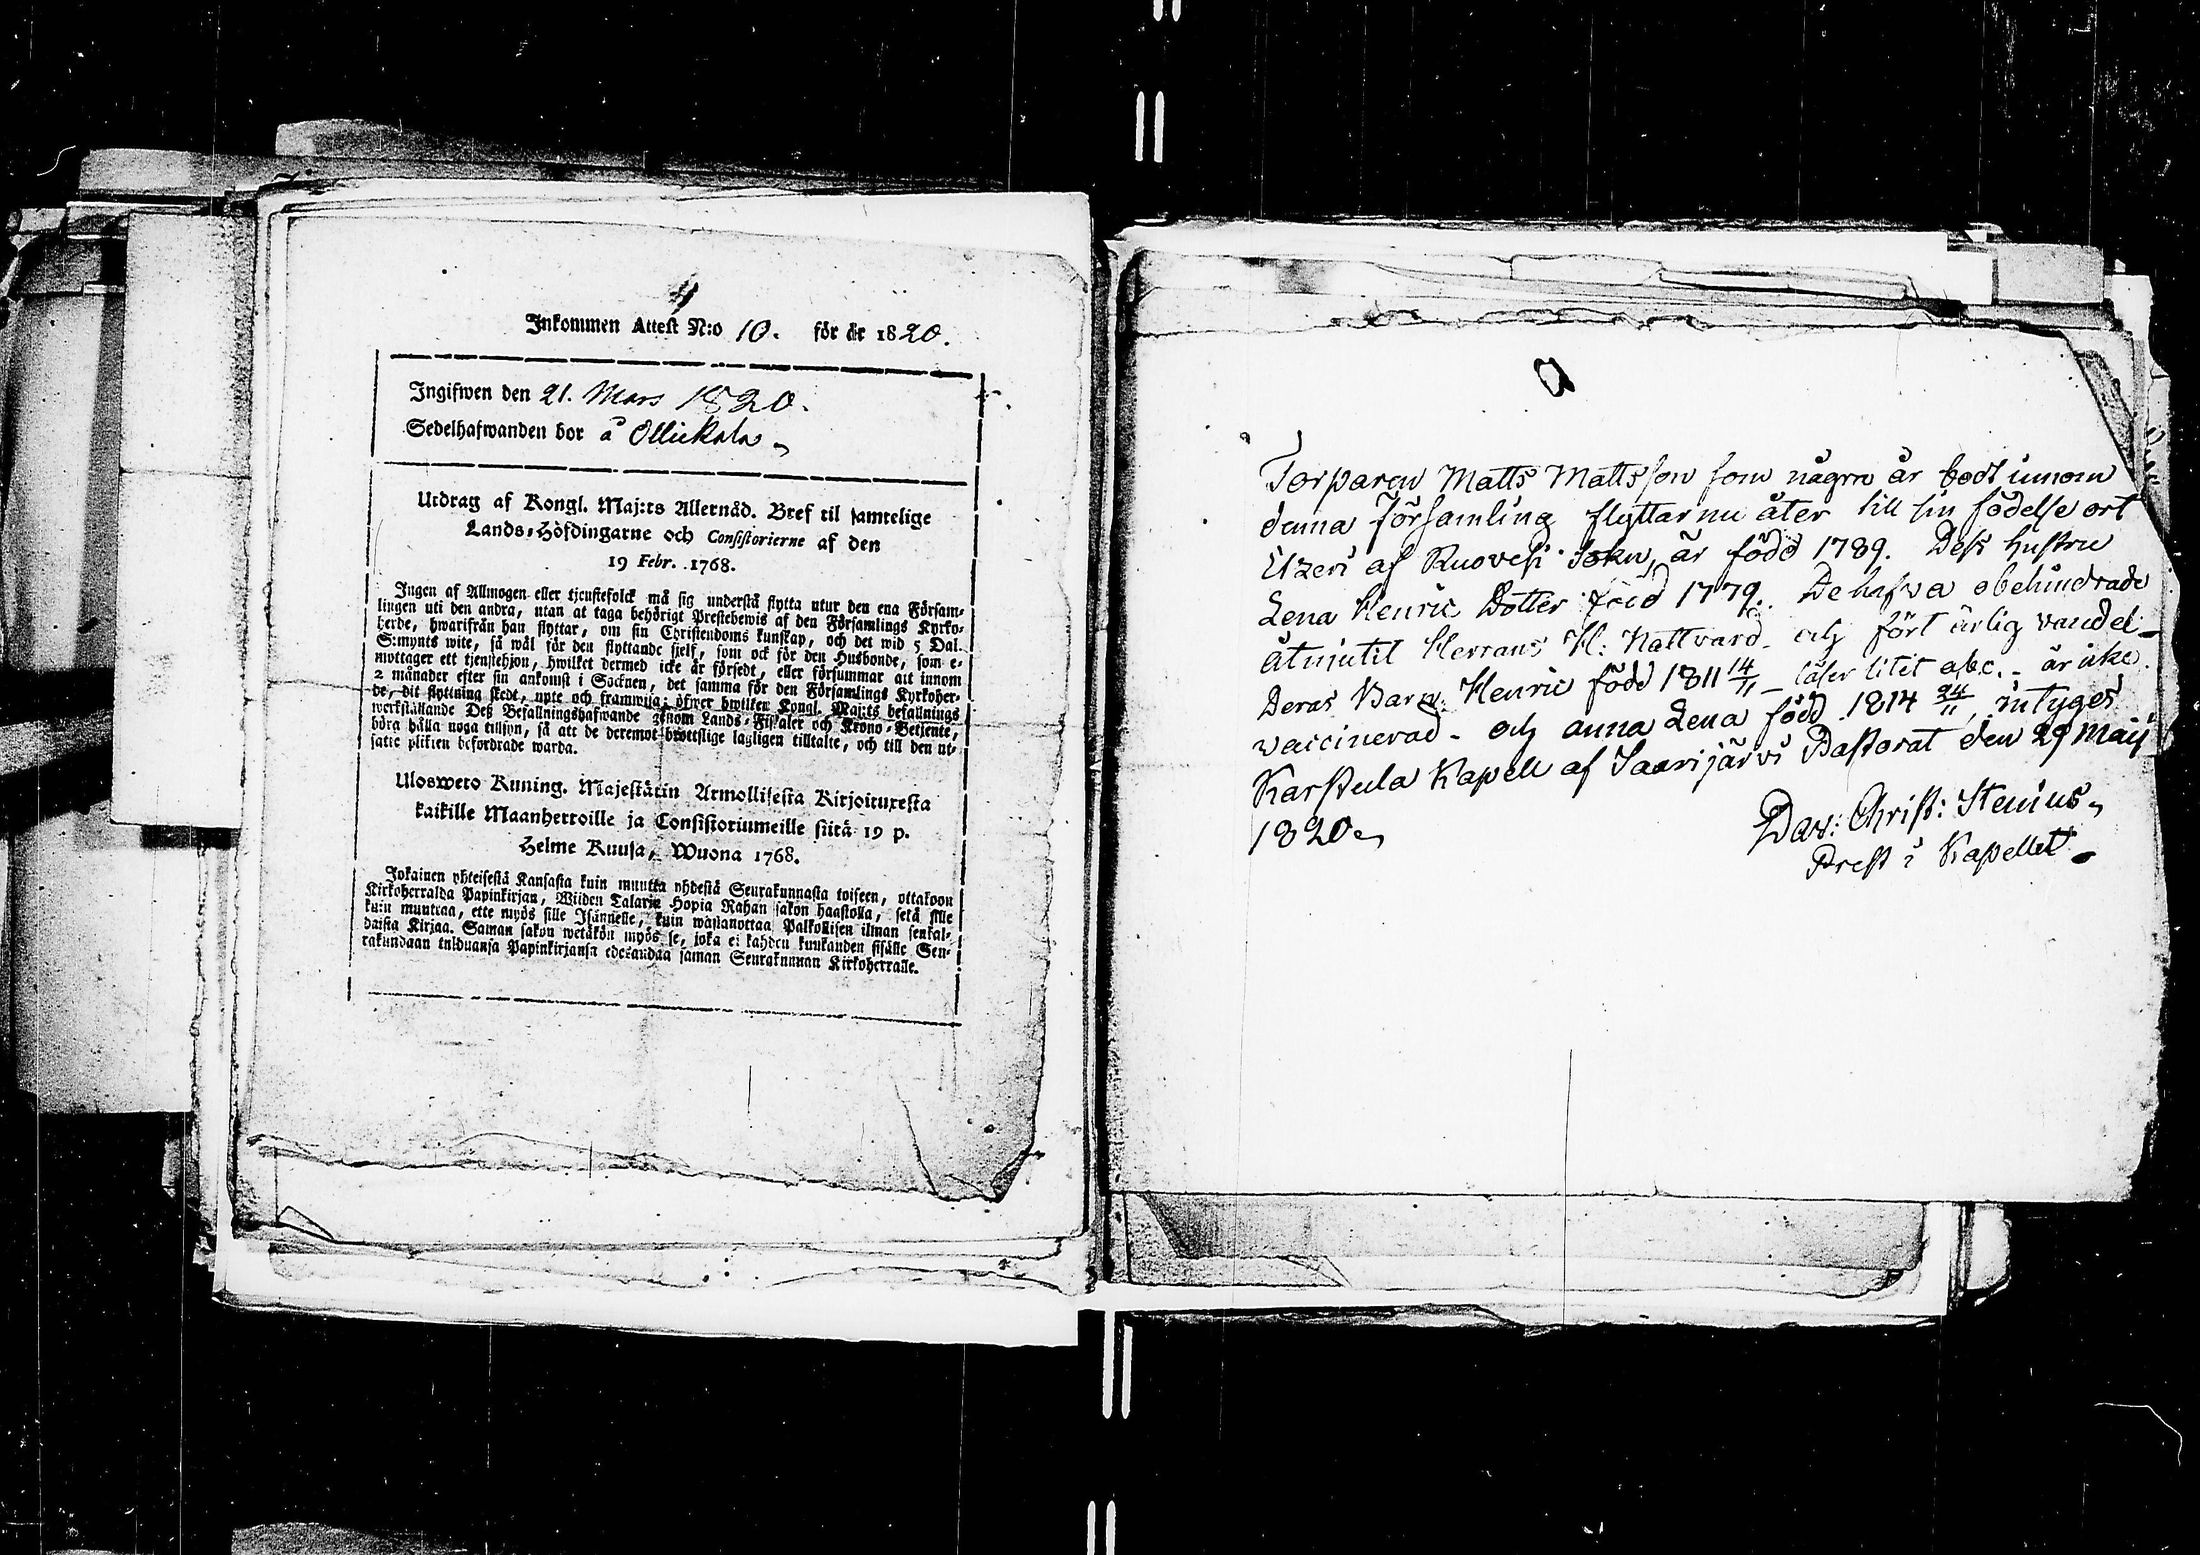 Inkommen Attest N:o 10. för år 1820.
Ingifwen den 21. Mars 1820.
Sedelhafwanden bor å Ollickala
Utdrag af Kongl. Maj:ts Allernåd. Bref til samtelige
Lands-Höfdingarne och Consistorierne af den
19 Febr. 1768.
Ingen af Allmogen eller tjenstefolck må sig understå flytta utur den ena Församlingen
lingen uti den andra, utan at taga behörigt Prestebewis af den Församlings Kyrko-
herde, hwarifrån han flyttar, om sin Christendoms kunskap, och det wid 5 Dal.
S:mynts wite, så wäl för den flyttande sjelf, som ock för den Husbonde, som e-
mottager ett tjenstehjon, hwilket dermed icke är försedt, eller försummar att innom
2 månader efter sin ankomst i Socknen, det samma för den Församlings Kyrkoher-
de, dit flyttning skedt, upte och framwisa; öfwer hwilken Kongl. Maj:ts befallnings
werkställande Deß Befallningshafwande genom Lands-Fiskaler och Krono-Betjente,
böra hålla noga tillsyn, så att de deremot brottslige lagligen tilltalte, och till den ut-
satte plikten befordrade warda.
Ulosweto Kuning. Majestätin Armollisesta Kirjoituxesta
kaikille Maanherroille ja Consistoriumeille siitä 19 p.
Helme Kuusa, Wuona 1768.
Jokainen yhteisestä Kansasta kuin muutta yhdestä Seurakunnasta toiseen, ottakoon
Kirkoherralda Papinkirjan, Wiiden Talarin Hopia Rahan sakon haastolla, sekä sille
kuin muuttaa, ette myös sille Isännelle, kuin wastanottaa Palkollisen ilman senkal-
daista Kirjaa. Saman sakon wetäkön myös se, joka ei kahden kuukauden sisälle Seu-
rakundaan tulduansa Papinkirjansa edesandaa saman Seurakunnan Kirkoherralle.
Torparen Matts Mattsson som några år bodt innom
denna Församling flyttar nu åter till sin födelse ort
Etzeri af Ruovesi Sokn, är född 1789. Dess hustru
Lena Henric Dotter född 1779. De hafva obehindrade
åtnjutit Herrans H: Nattvard och fört ärlig vandel
Deras Barn Henric född 1811 14/11 läser litet abc. är icke
vaccinerad - och anna Lena född 1814 24/11, intygar
Karstula Kapell af Saarijärvi Pastorat den 29 Maij
1820.
Dav: Christ: Stenius
Prest i Kapellet